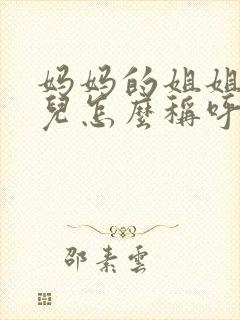 妈妈的姐姐
兒怎麼稱呼
邵素雲